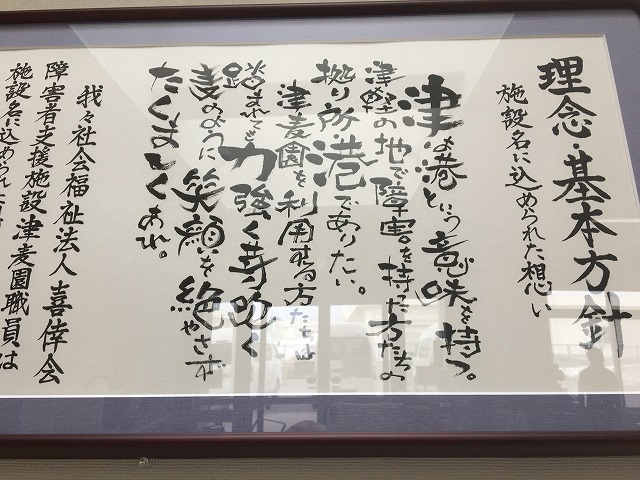 理念・基本方針
施設名に込められた想い
津は港という意味を持つ。
津軽の地で障害を持った方たちの
拠り所港でありたい。
津麦園を利用する方たちは
踏まれても力強く芽吹く
麦のように笑顔を絶やさず
たくましくあれ。
我々社会福祉法人喜倖会
障害者支援施設津麦園職員は
施設名に込められた